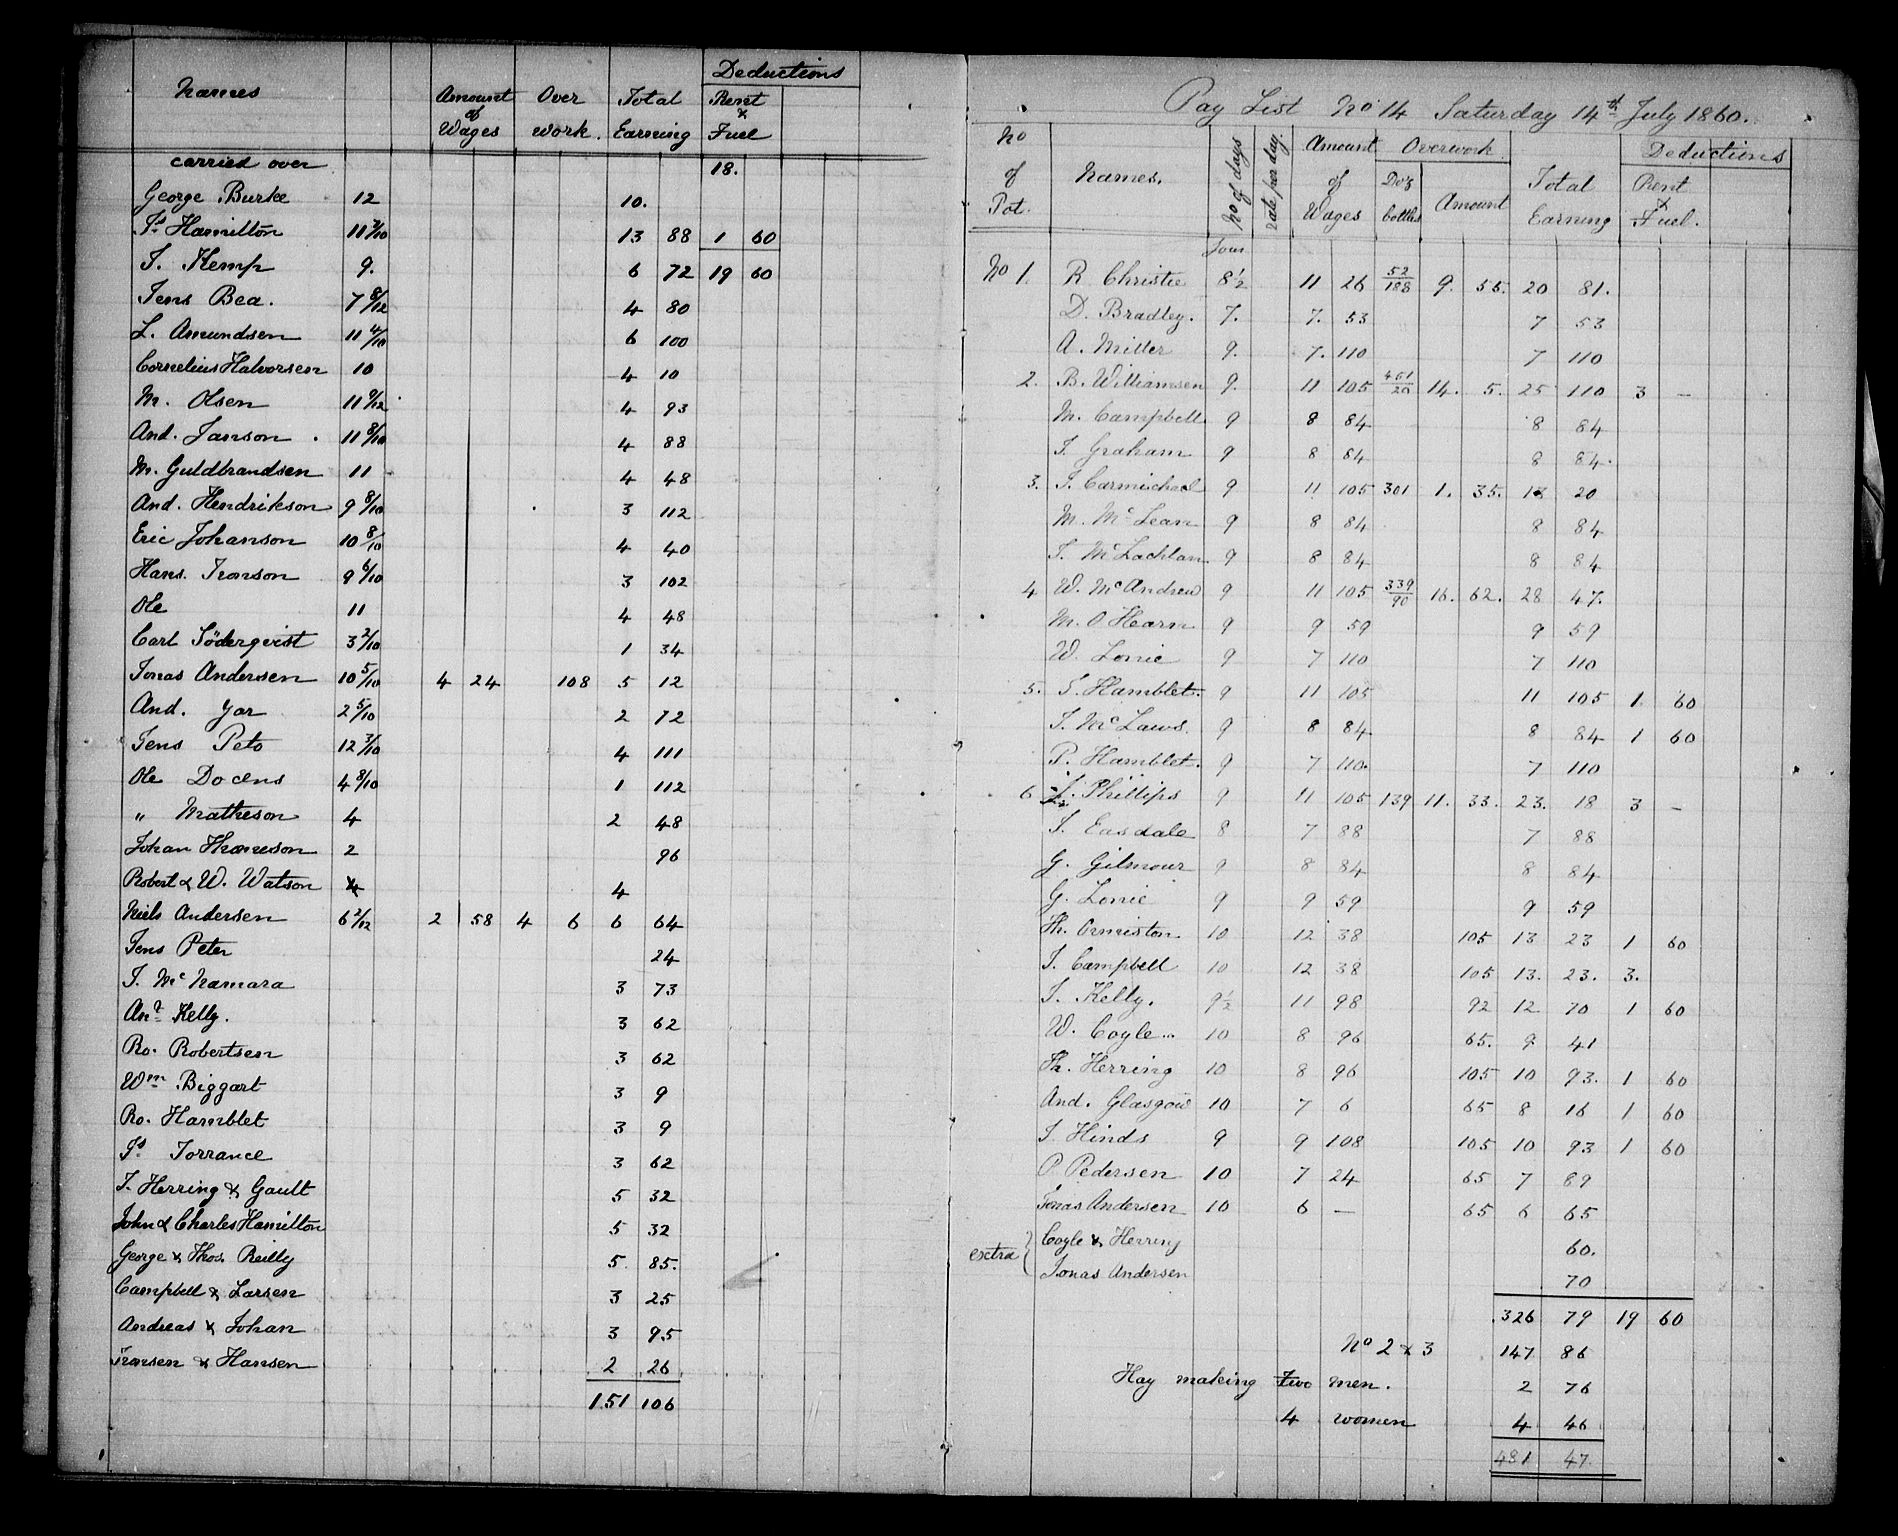 Names Amount of Wages Over work. Total Earning Deductions Rent & Fuel
carried over 18.
George Burke 12 10.
Js Hamilton 11 7/10 13 88 1 60
J. Kemp 9. 6 72 19 60
Jens Bea. 7 8/12 4 80
L. Amundsen 11 4/10 6 100
Cornelius Halvorsen 10 4 10
M. Olsen 11 9/12 4 93
And. Janson 11 8/10 4 88
M. Guldbrandsen 11 4 48
And. Hendrikson 9 8/10 3 112
Eric Johanson 10 8/10 4 40
Hans. Ironson 9 6/10 3 102
Ole 11 4 48
Carl Söderqvist 3 2/10 1 34
Jonas Andersen 10 5/10 4 24 108 5 12
And. Yar 2 5/10 2 72
Jens Peto 12 3/10 4 111
Ole Docens 4 8/10 1 112
" Matheson 4 2 48
Johan Thomeson 2 96
Robert & W. Watson 4 4
Niels Andersen 6 2/12 2 58 4 6 6 64
Jens Peter 24
J. McNamara 3 73
Anw Kelly. 3 62
Ro. Robertsen 3 62
Wm Biggart 3 9
Ro. Hamblet 3 9
Js Torrance 3 62
J. Herring & Gault 5 32
John & Charles Hamilton 5 32
George & Thos. Reilly 5. 85.
Campbell & Larsen 3 25
Andreas & Johan 3 95
Ironsen & Hansen 2 26
151 106
Pay List No 14 Saturday 14th July 1860.
No of Pot. Names. No of days rate per day. Amount of Wages Overwork Doz bottles Amount Total Earning Deductions Rent & Fuel.
Jours
No 1. R Christie 8 1/2 11 26 52/188 9. 55. 20 81.
D. Bradley. 7. 7. 53 7 53
A. Miller 9. 7. 110 7 110
2. B. Williamsen 9. 11 105 451/20 14. 5. 25 110 3 —
M. Campbell 9 8 84 8 84
J. Graham 9 8 84 8 84.
3. J. Carmichael 9 11 105 301 1. 35. 13 20
M. McLean 9 8 84 8 84
J. McLachlan 9 8 84 8 84
4 W. McAndrew 9 11 105 339/90 16. 62. 28 47.
M. O Hearn 9 9 59 9 59
W. Lonie 9 7 110 7 110
5. S. Hamblet. 9 11 105 11 105 1 60
J. McLaws. 9 8 84 8 84 1 60
P. Hamblet. 9 7 110. 7 110
6 J. Phillips 9 11 105 139 11. 33. 23. 18 3 —
J. Easdale 8 7 88 7 88
G. Gilmour 9 8 84 8 84
G. Lonie 9 9 59 9 59
Th. Ormiston 10 12 38 105 13 23 1 60
J. Campbell 10 12 38 105 13. 23. 3.
J. Kelly. 9 1/2 11 98 92 12 70 1 60
W. Coyle 10 8 96 65. 9 41
Th. Herring 10 8 96 105 10 93. 1 60
And. Glasgow 10 7 6 65 8 16 1 60
J. Hinds 9 9 108 105 10 93 1 60
P. Pedersen 10 7 24 65 7 89
Jonas Andersen 10 6 — 65 6 65
extra { Coyle & Herring 60.
Jonas Andersen 70
326 79 19 60
No 2 & 3 147 86
Hay making two men. 2 76
4 women 4 46
481 47.